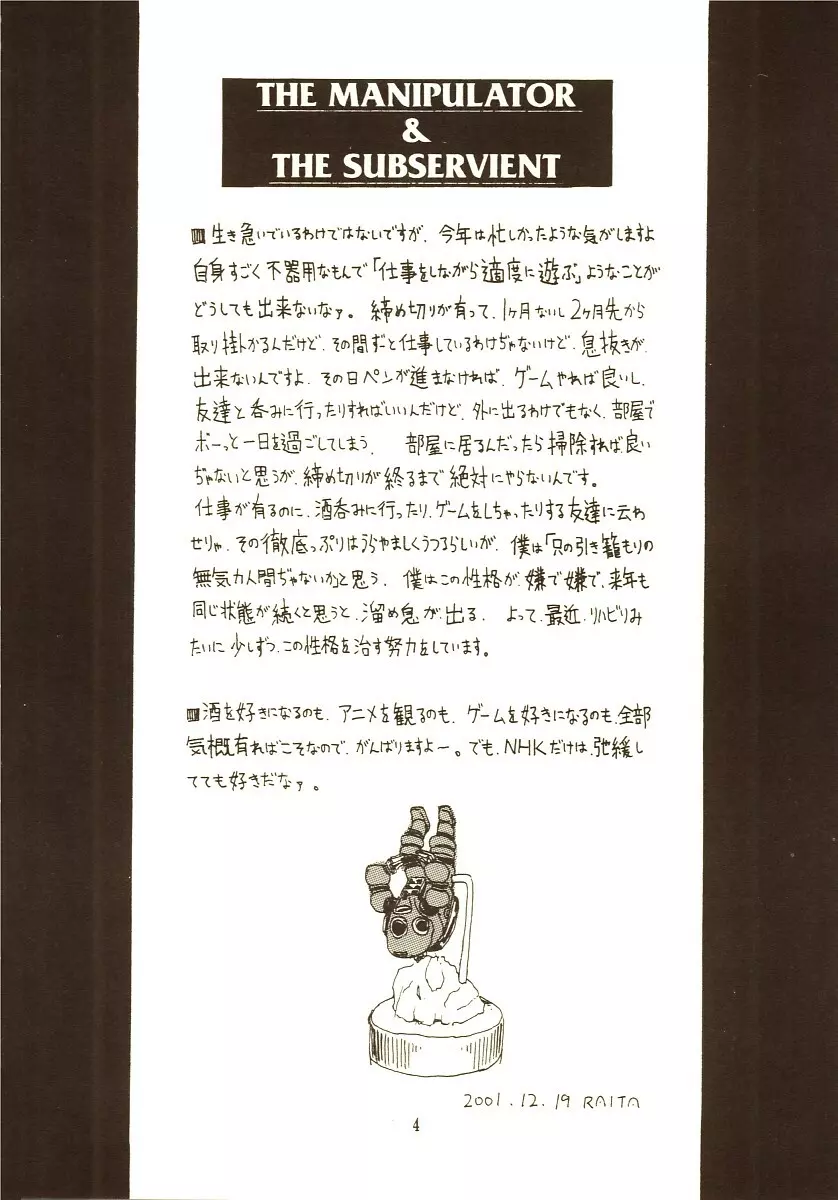 THE MANIPULATOR
&
THE SUBSERVIENT
生き急いでいるわけではないですが、今年は忙しかったような気がしますよ
自身すごく不器用なもんで「仕事をしながら適度に遊ぶ」ようなことが
どうしても出来ないなァ。 締め切りが有って、1ヶ月ないし2ヶ月先から
取り掛かるんだけど、その間ずーと仕事しているわけぢゃないけど、息抜きが、
出来ないんですよ、その日ペンが進まなければ、ゲームやれば良いし、
友達と呑みに行ったりすればいいんだけど、外に出るわけでもなく、部屋で
ボーっと一日を過ごしてしまう、 部屋に居るんだったら掃除すれば良い
ぢゃないと思うが、締め切りが終るまで絶対にやらないんです。
仕事が有るのに、酒呑みに行ったり、ゲームをしちゃったりする友達に云わ
せりゃ、その徹底っぷりはうらやましくうつるらしいが、僕は「只の引き籠もりの
無気力人間ぢゃないか」と思う、 僕はこの性格が、嫌で嫌で、来年も
同じ状態が続くと思うと、溜め息が出る、 よって、最近、リハビリみ
たいに少しずつ、この性格を治す努力をしています。
酒を好きになるのも、アニメを観るのも、ゲームを好きになるのも、全部
気概有ればこそなので、がんばりますよー。でも、NHKだけは、弛緩し
てても好きだなァ。
2001.12.19 RAITA
4